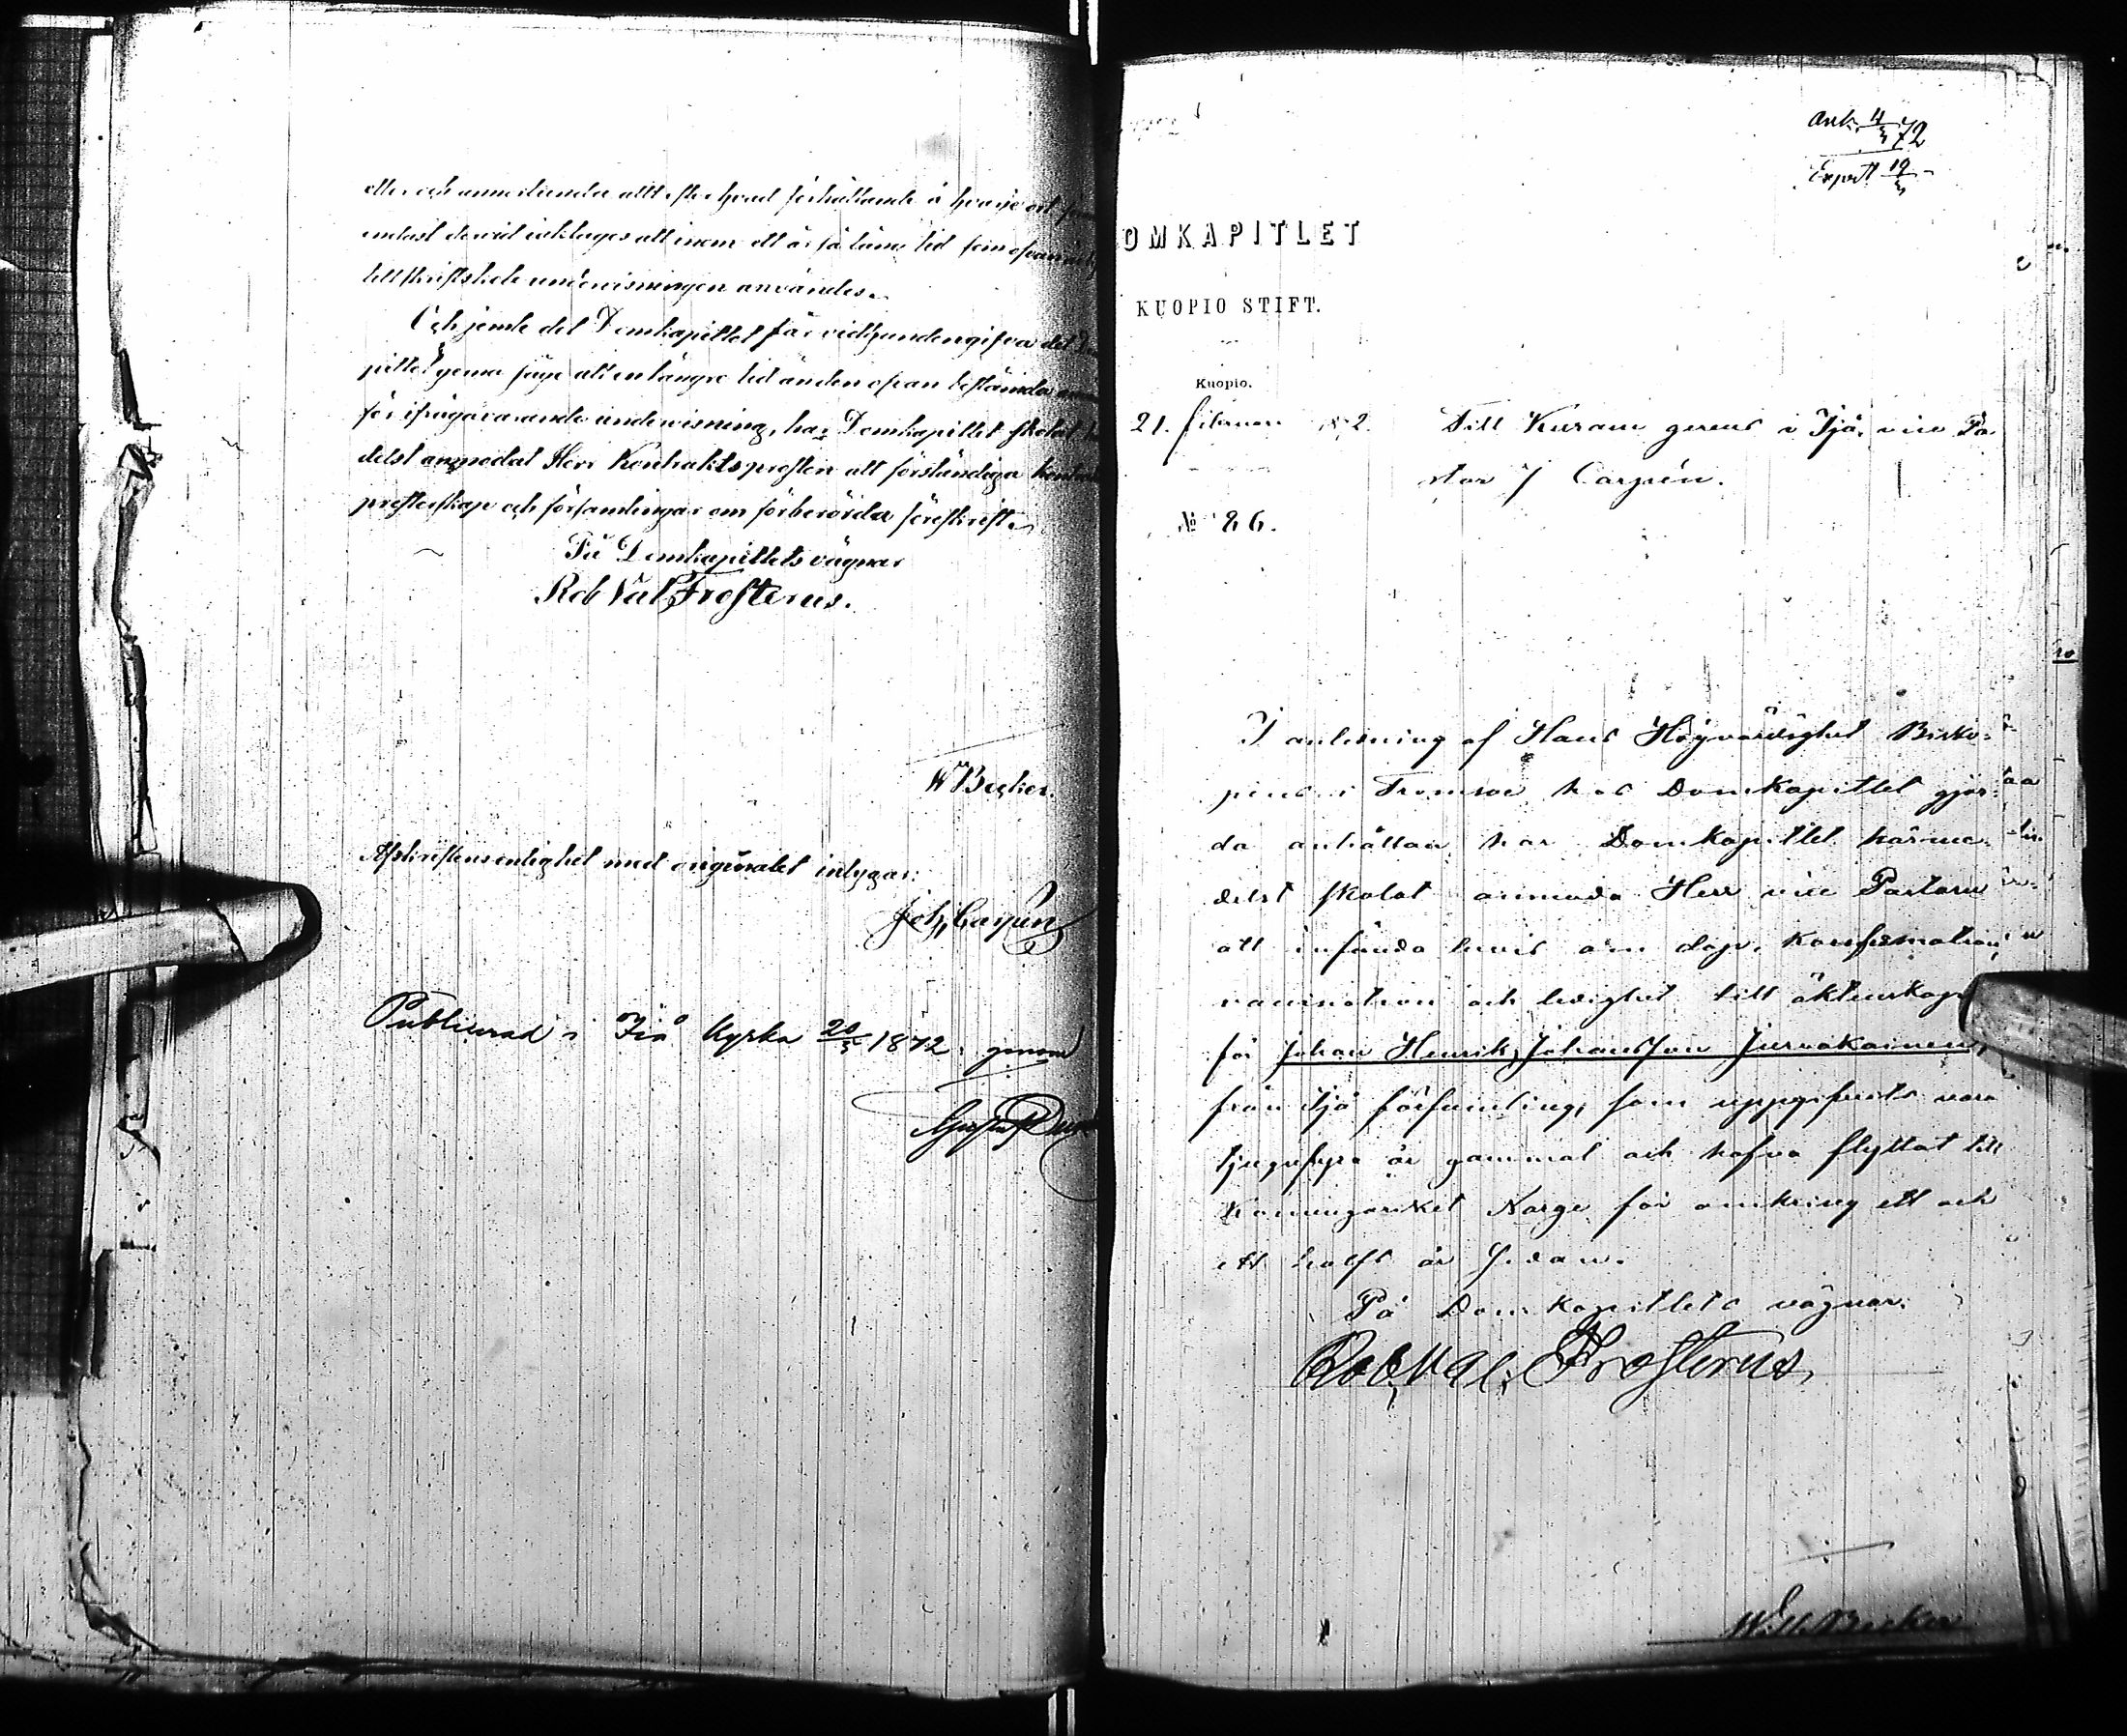 eller och annorlunda allt efter hvad förhållande å hvarje ort
endast dervid iakttages att inom ett år så lång tid som ofvan
till skriftskole undervisningen användes.
Och jemte det Domkapitlet får vidhandengifva det
pitlet gerna såge att en längre tid än den ofvan bestämda
för ifrågavarande undervisning, har Domkapitlet skolat
delst anmodat Herr Kontraktsprosten att förständiga
presterskap och församlingar om förberörda föreskrift.
På Domkapitlets vägnar
Rob Val Frosterus.
W Becker.
Afskriftens enlighet med originalet intygar:
Joh, Carpén
Publicerad i Ijå kyrka 20/3 1872. genom
Ank. 4/3 72
Exped 19/3
OMKAPITLET
KUOPIO STIFT.
Kuopio.
21. februari 1872.
Till Kuram gerens i Ijå, vice Pa
stor J Carpén.
№ 86.
I anledning af Hans Högvördighet Bisko-
pens i Tromsoe hos Domkapitlet gjor-
da anhållan har Domkapitlet härme-
delst skolat anmoda Herr vice Pastorn
att insända bevis om dop, Konfirmation,
vaccination och ledighet till äktenskap
för Johan Henrik Johansson Jurvakainen,
från Ijå församling, som uppgifvits vara
tjugufyra år gammal och hafva flyttat till
Konungariket Norge för omkring ett och
ett halft år sedan.
På Domkapitlets vägnar:
Rob, Val; Frosterus
Wilh Becker